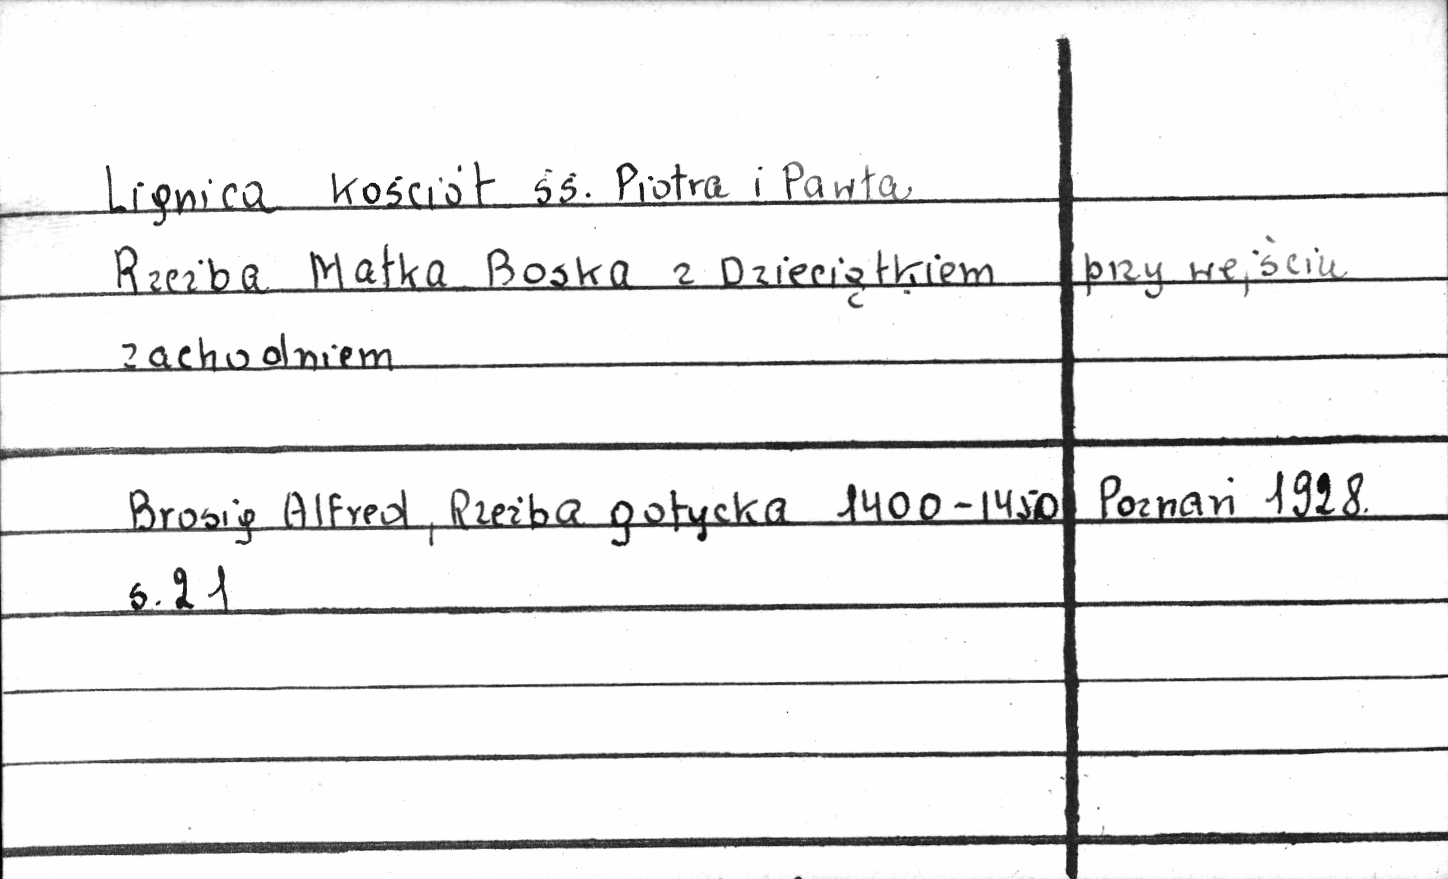 Lignica kościół śś. Piotra i Pawła
Rzeźba Matka Boska z Dzieciątkiem przy wejściu
zachodniem
Brosig Alfred, Rzeźba gotycka 1400-1450 Poznań 1928.
s. 21